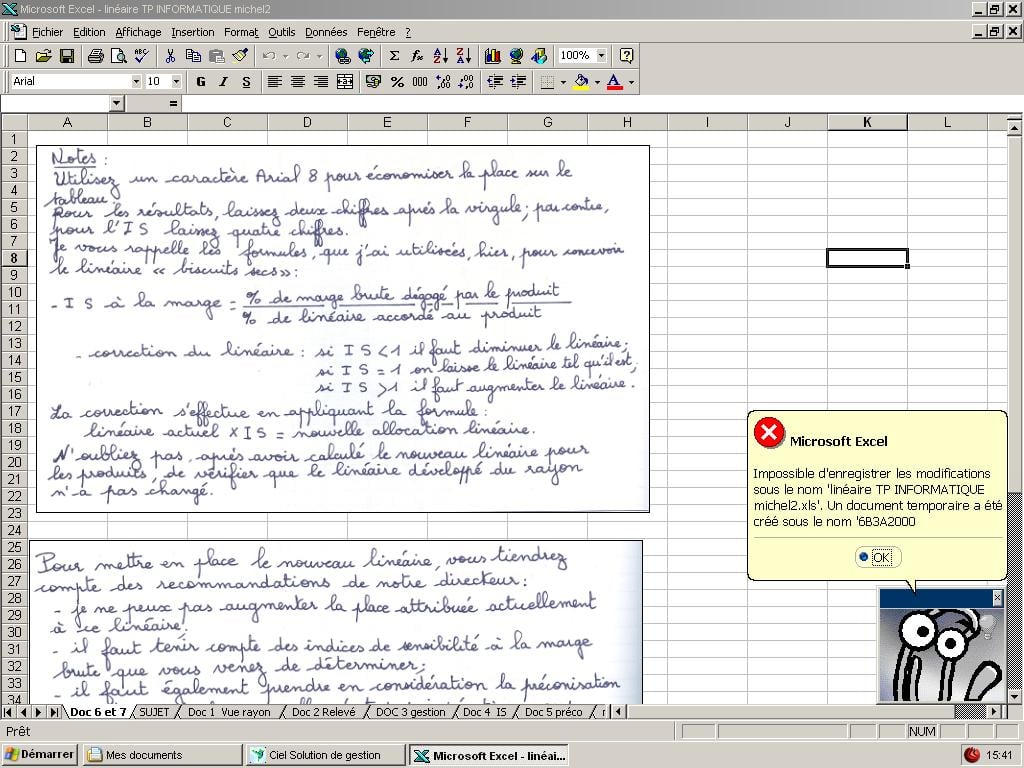 Microsoft Excel - linéaire TP INFORMATIQUE michel2
Fichier Edition Affichage Insertion Format Outils Données Fenêtre ?
100%
Arial 10 G I S % 000
=
A B C D E F G H I J K L
1
2
3
4
5
6
7
8
9
10
11
12
13
14
15
16
17
18
19
20
21
22
23
24
25
26
27
28
29
30
31
32
33
34
Notes :
Utilisez un caractère Arial 8 pour économiser la place sur le
tableau.
Pour les résultats, laissez deux chiffres après la virgule; par contre,
pour l'IS laissez quatre chiffres.
Je vous rappelle les formules, que j'ai utilisées, hier, pour concevoir
le linéaire « biscuits secs» :
- I S à la marge = % de marge brute dégagé par le produit
% de linéaire accordé au produit
- correction du linéaire : si I S < 1 il faut diminuer le linéaire;
si I S = 1 on laisse le linéaire tel qu'il est;
si I S > 1 il faut augmenter le linéaire.
La correction s'effectue en appliquant la formule :
linéaire actuel X I S = nouvelle allocation linéaire.
N'oubliez pas, après avoir calculé le nouveau linéaire pour
les produits, de vérifier que le linéaire développé du rayon
n'a pas changé.
Pour mettre en place le nouveau linéaire, vous tiendrez
compte des recommandations de notre directeur :
- je ne peux pas augmenter la place attribuée actuellement
à ce linéaire!
- il faut tenir compte des indices de sensibilité à la marge
brute que vous venez de déterminer;
- il faut également prendre en considération la préconisation
Microsoft Excel
Impossible d'enregistrer les modifications
sous le nom 'linéaire TP INFORMATIQUE
michel2.xls'. Un document temporaire a été
créé sous le nom '6B3A2000
OK
Doc 6 et 7 SUJET Doc 1 Vue rayon Doc 2 Relevé DOC 3 gestion Doc 4 IS Doc 5 préco
Prêt NUM
Démarrer Mes documents Ciel Solution de gestion Microsoft Excel - linéai... 15:41